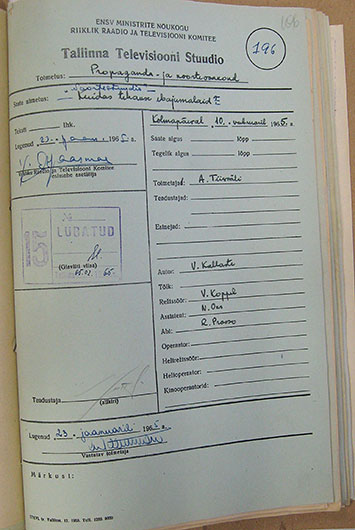 166
ENSV MINISTRITE NÕUKOGU
RIIKLIK RAADIO JA TELEVISIOONI KOMITEE
196
Tallinna Televisiooni Stuudio
Toimetus: Propaganda- ja noortesaated
Saate nimetus: Kuidas tehakse ebajumalaid?
Teksti lhk.
Lugenud 23. jaan. 1965 a.
Riikliku Raadio ja Televisiooni Komitee
esimehe asetäitja
LUBATUD
(Glavliti viisa)
05.02. 65.
Teadustaja (allkiri)
Kolmapäeval 10. veebruaril 1965 a.
Saate algus lõpp
Tegelik algus lõpp
Toimetajad: A.
Teadustajad:
Esinejad:
Autor: V. Kallaste
Tõlk:
Režissöör: V. Koppel
Assistent: N. Oks
Abi: R. Prosso
Operaator:
Helirežissöör:
Helioperaator:
Kinooperaatorid:
Lugenud 23. jaanuaril 1965 a.
Vastutav toimetaja
Märkusi: